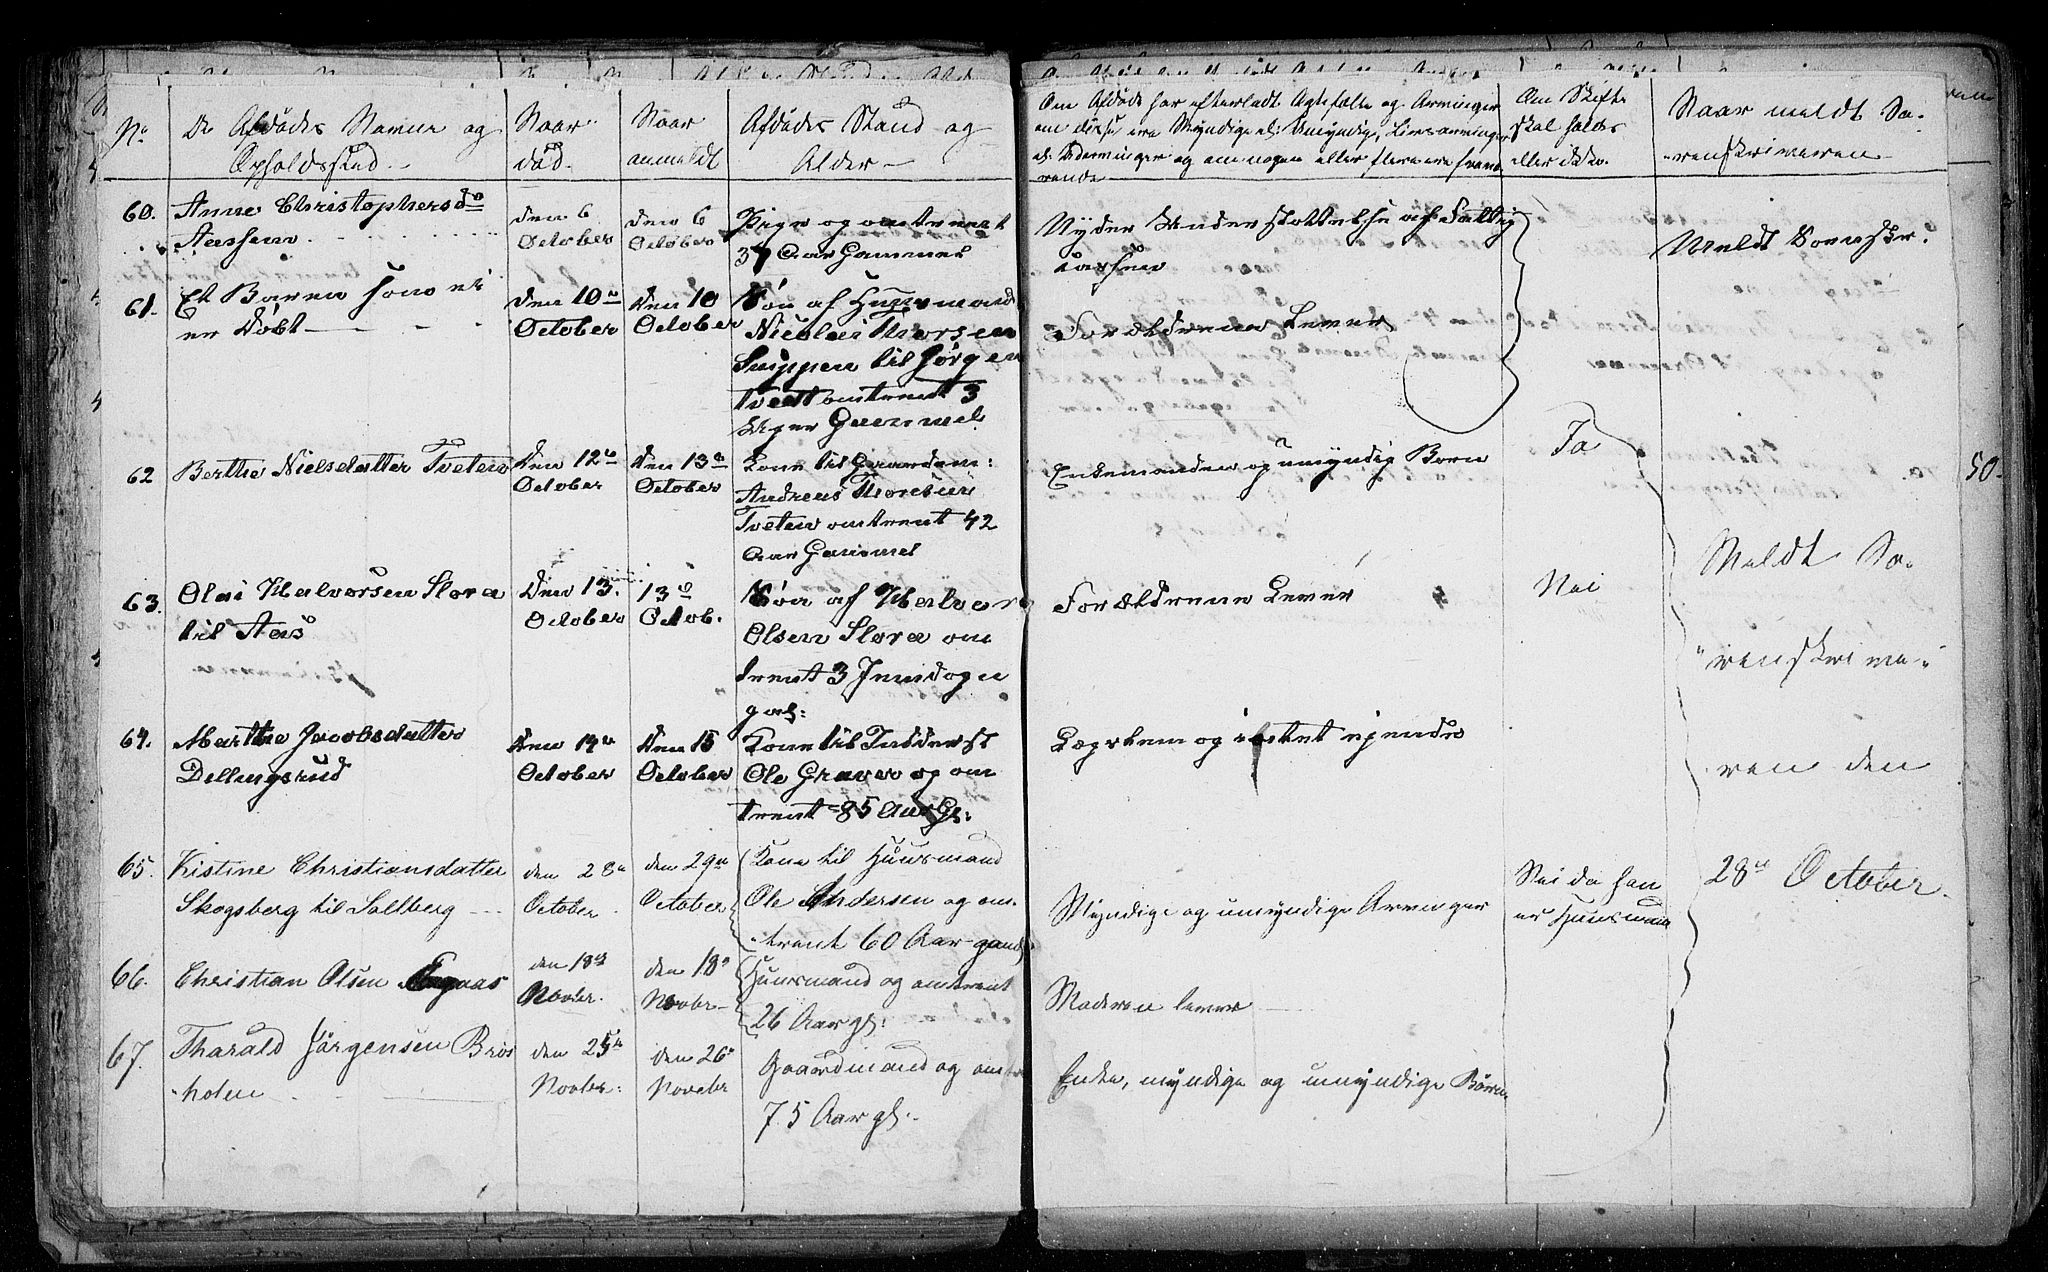 No
De Afdödes Navne og
Opholdssted.
Naar
död.
Naar
anmeldt
Afdödes Stand og
Alder
Om Afdöde har efterladt Ægtefælle og Arvinger
om disse ere Myndige el: Umyndige, Livsarvinger
el. Udarvinger og om nogen eller flere ere fravæ
rende
Om Skifte
skal holdes
eller ikke.
Naar meldt So-
renskriveren
60.
Anne Christophersdr
Aassen
den 6
October
den 6
October
Pige og omtrent
37 Aar Gammel
Nyder Understøttelse af Fattig
cassen
Meldt Sorenskr.
61.
Et Baren som ei
er Döbt
Den 10de
October
Den 10
October
Sön af Huusmand
Nicolai Thorsen
Snippen til Jörgen
tvedt omtrent 3
Uger Gammel
Forældrene Lever
62
Berthe Nielsdatter Tveten
Den 12te
October
Den 13de
October
Kone til Gaardm:
Andreas Thorsen
Tveten omtrent 42
Aar Gammel
Enkemanden og umyndig Born
Ja
63.
Olai Halvorsen Slora
til Aas
Den 13.
October
13de
Octob.
Sön af Halvor
Olsen Slora om
trent 3 Jemdogn
gal:
Forældrene Lever
Nei
64.
Marthe Jacobsdatter
Dellingsrud
Den 14de
October
Den 15
October
Kone til Inderst
Ole Graver og om
trent 85 Aar Gl:
Lægrlem og intet ejende
65.
Kistine Christiansdatter
Skogsberg til Sallberg
den 28de
October
den 29de
October
Kone til Huusmand
Ole Andersen og om-
trent 60 Aar gaml
Myndige og umyndige Arvinger
Nei da han
er Huusmand
66.
Christian Olsen
den 18de
Novbr.
den 18de
Novbr
Huusmand og omtrent
26 Aar gl:
Moderen lever
67.
Tharald Jörgensen Brös
holen
den 25de
Novbr.
den 26de
Novebr
Gaardmand og omtr
75 Aar gl.
Enke, myndige og umyndige Börn
Meldt So-
renskrive-
ren den
28de October.
50.